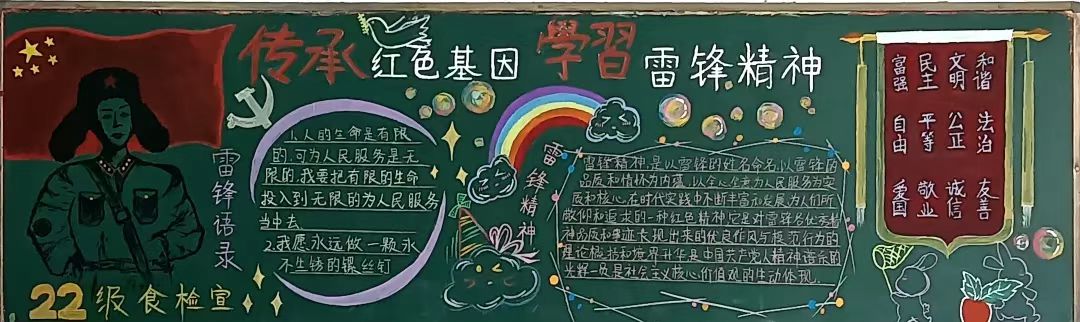 传承红色基因 學習雷锋精神
雷锋语录
1.人的生命是有限
的.可为人民服务是无
限的.我要把有限的生命
投入到无限的为人民服务
当中去
2.我愿永远做一颗永
不生锈的镙丝钉
22级食检宣
雷锋精神
雷锋精神,是以雷锋的姓名命名,以雷锋的
品质和情怀为内蕴,以全心全意为人民服务为实
质和核心,在时代实践中不断丰富和发展,为人们所
敬仰和追求的一种红色精神,它是对雷锋名优秀精
神品质和事迹表现出来的优良作风与模范行为的
理论概括和境界升华是中国共产党人精神谱系的
光辉一页是社会主义核心价值观的生动体现.
富强 民主 文明 和谐
自由 平等 公正 法治
爱国 敬业 诚信 友善